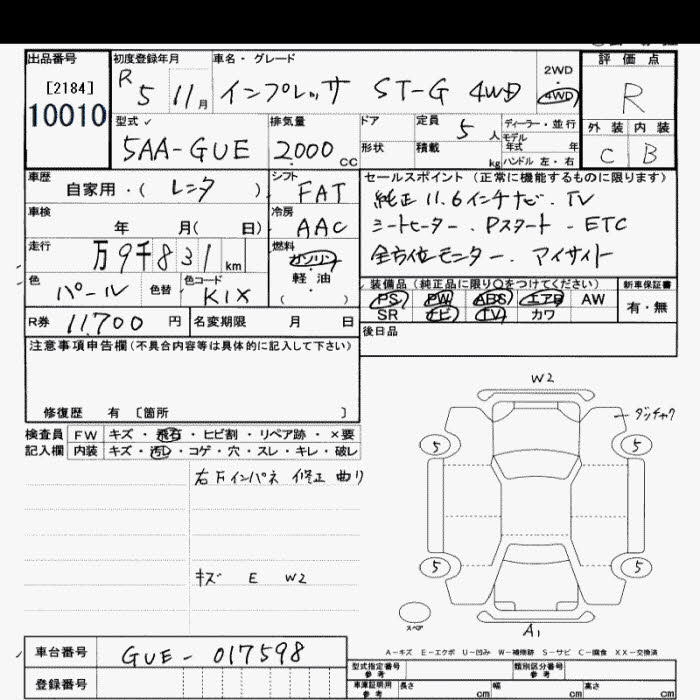 出品番号
[2184]
10010
初度登録年月
R 5 11月
車名・グレード
インプレッサ ST-G 4WD
2WD
4WD
評価点
R
外装 内装
C B
型式
5AA-GUE
排気量
2.000 CC
ドア
形状
定員 5 人
積載 kg
ディーラー・並行
モデル
年式 年
ハンドル 左・右
車歴
自家用・( レンタ )
シフト
FAT
車検
年 月( 日)
冷房
AAC
走行
万9千831km
燃料
ガソリン
・
軽油
( )
色
パール
色替
色コード
KIX
セールスポイント(正常に機能するものに限ります)
純正11.6インチナビ.TV
シートヒーター.Pスタート.ETC
全方位モニター.アイサイト
装備品(純正品に限り○をつけてください)
新車保証書
PS PW ABS エアB AW
SR ナビ TV カワ
有・無
R券 11,700 円
名変期限 月 日
後日品
注意事項申告欄(不具合内容等は具体的に記入して下さい)
修復歴 有 〔箇所 〕
検査員 FW キズ・飛石・ヒビ割・リペア跡・×要
記入欄 内装 キズ・汚れ・コゲ・穴・スレ・キレ・破レ
右Fインパネ 修正 曲り
キズ E W2
W2
5 5
5 5
スペア
A1
A-キズ E-エクボ U-凹み W-補修跡 S-サビ C-腐食 XX-交換済
車台番号
GUE-017598
登録番号
型式指定番号
参考
類別区分番号
参考
車庫証明用
参考
長さ cm
幅 cm
高さ cm